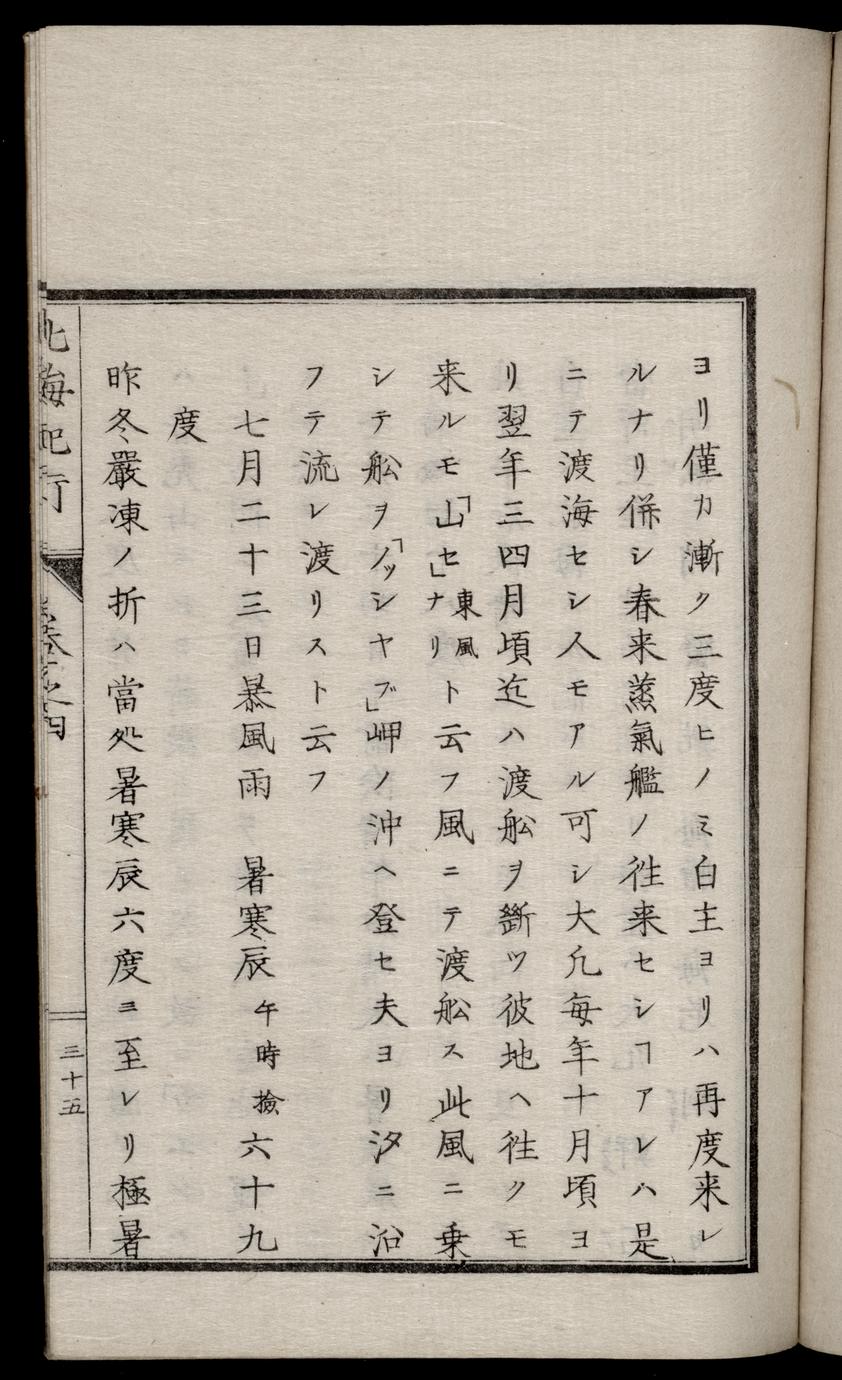 ヨリ僅カ漸ク三度ヒノミ白主ヨリハ再度来レ
ルナリ併シ春来蒸氣艦ノ徃来セシヿアレハ是
ニテ渡海セシ人モアル可シ大凢毎年十月頃ヨ
リ翌年三四月頃迠ハ渡舩ヲ斷ツ彼地ヘ徃クモ
来ルモ「山セ」東風ナリト云フ風ニテ渡舩ス此風ニ乗
シテ舩ヲ「ノッシヤブ」岬ノ沖ヘ登セ夫ヨリ汐ニ沿
フテ流レ渡リスト云フ
七月二十三日暴風雨　暑寒辰午時撿六十九
度
昨冬嚴凍ノ折ハ當処暑寒辰六度ニ至レリ極暑
北海紀行
卷之四
三十五